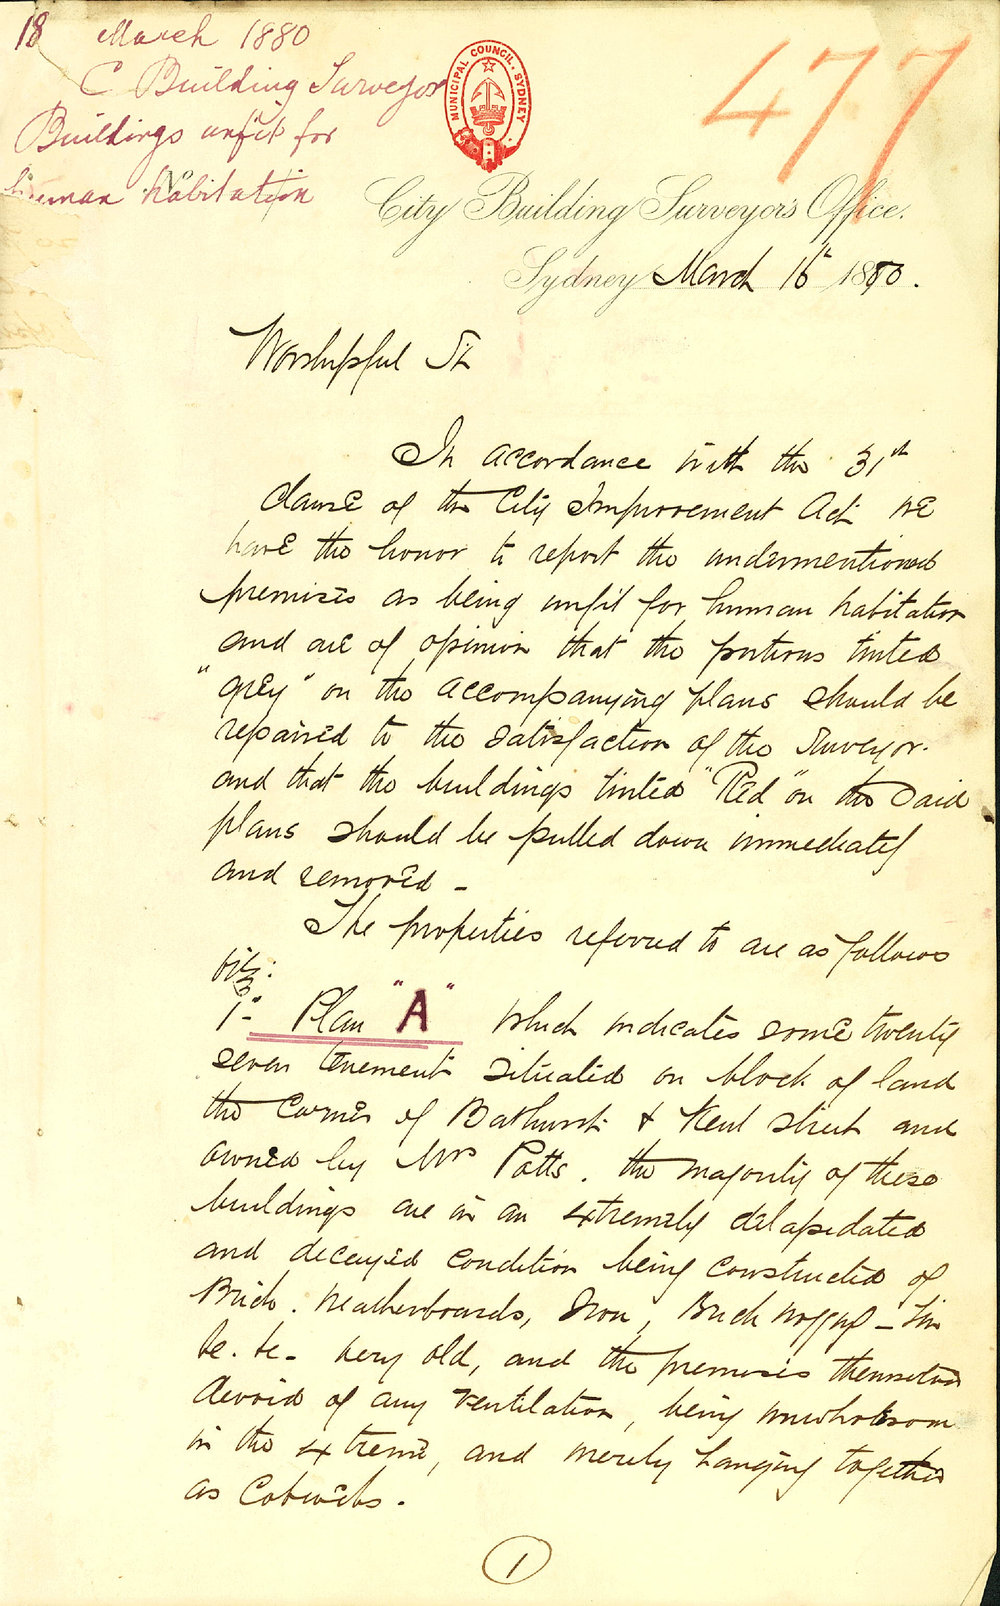 18 March 1880
C Building Surveyor
Buildings unfit for
human habitation
MUNICIPAL COUNCIL. SYDNEY
477
City Building Surveyor's Office.
Sydney March 16th 1880.
Worshipful Sir
In accordance with the 31st
Clause of the City Improvement Act we
have the honor to report the undermentioned
premises as being unfit for human habitation
and are of opinion that the portions tinted
"grey" on the accompanying plans should be
repaired to the satisfaction of the Surveyor.
and that the buildings tinted "Red" on the said
plans should be pulled down immediately
and removed -
The properties referred to are as follows
viz:
1- Plan "A" which indicates some twenty
seven tenement situated on block of land
the Corner of Bathurst & Kent Street and
owned by Mrs Potts. the majority of these
buildings are in an extremely delapidated
and decayed condition being constructed of
Brick. Weatherboards, Iron, Brick nogging - Tin
&c. &c - very old, and the premises themselves
devoid of any ventilation, being unwholesom
in the extreme, and merely hanging together
as Cobwebs.
1